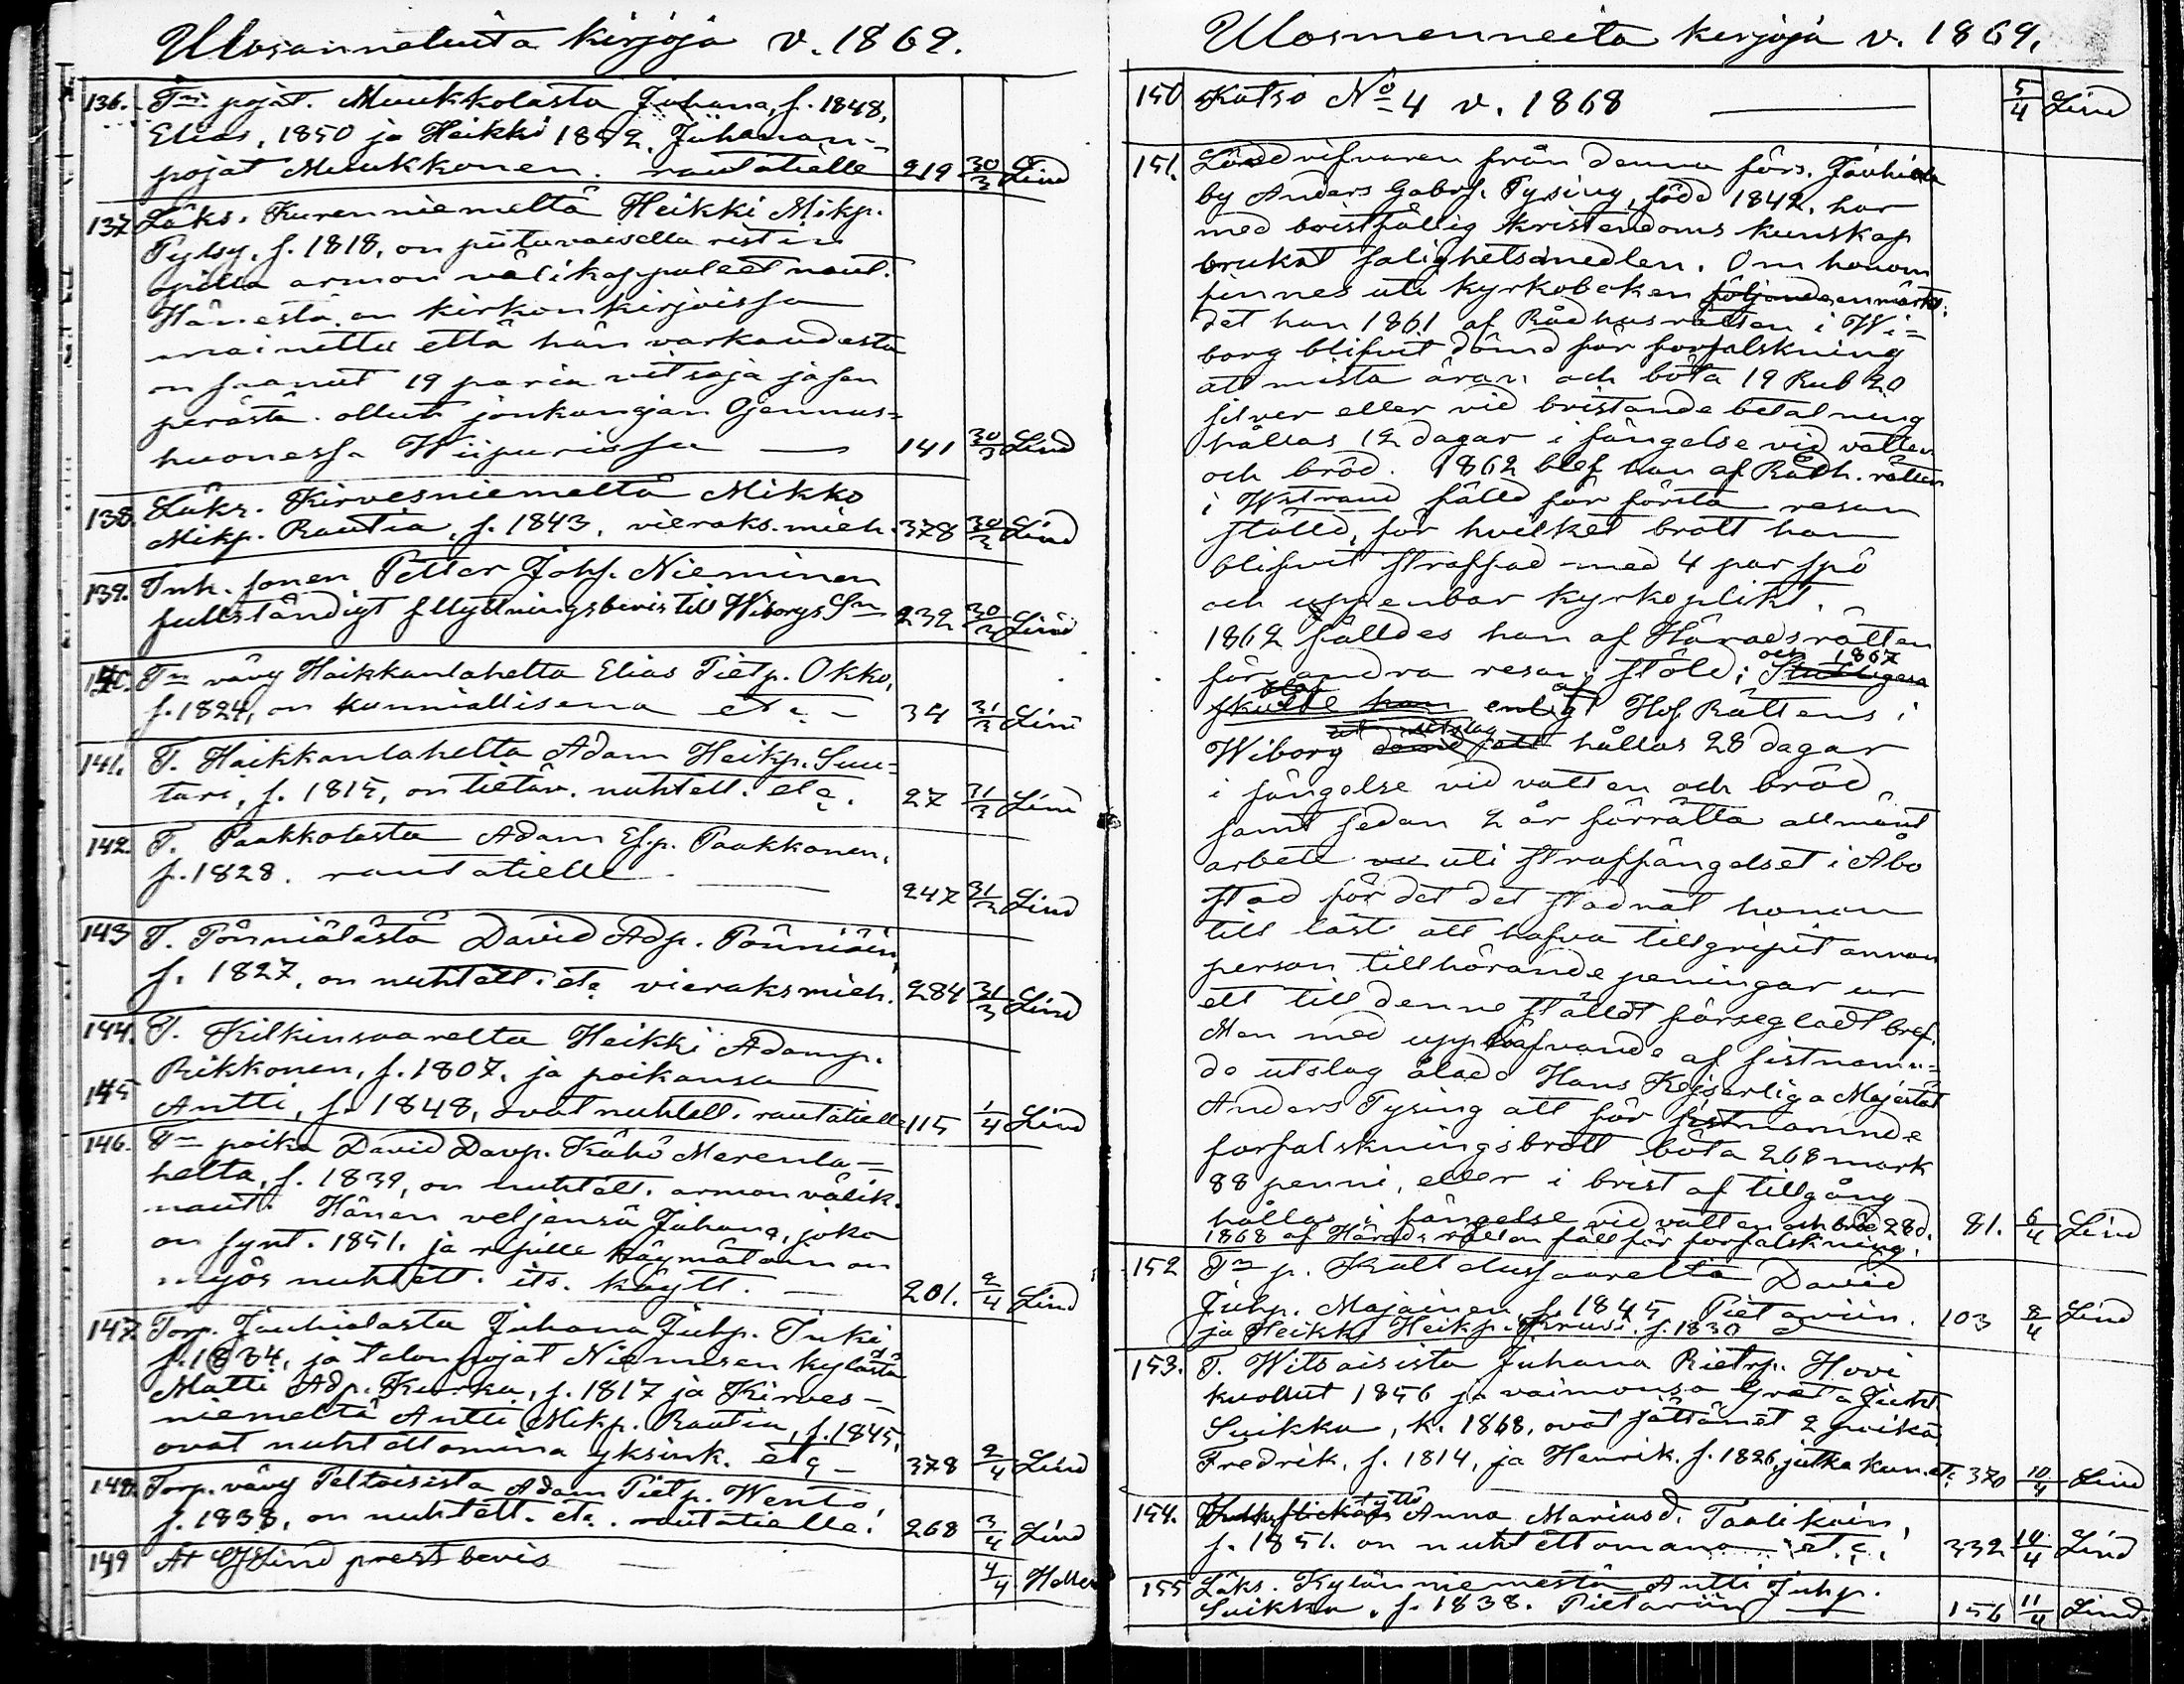 Ulosannetuita kirjoja v. 1869.
136. Tn pojat. Muukkolasta Juhana, s. 1848,
Elias, 1850 ja Heikki 1852, Juhanan-
pojat Muukkonen. rautatielle 219 30/3 Lind
137 Läks. Kurenniemeltä Heikki Mikp.
Pylsy, s. 1818, on
opilla armon välikappaleet naut.
Hänestä on kirkonkirjoissa
mainittu että hän varkaudesta
on saanut 19 paria vitsoja ja sen
perästä ollut jonkun ajan Ojennus-
huonessa Wiipurissa — 141 30/3 Lind
138. Läks. Kirvesniemeltä Mikko
Mikp. Rautia, s. 1843, vieraks. mieh. 378 30/3 Lind
139. Inh. sonen Petter Johs. Nieminen
fullständigt flyttningsbevis till Wiborgs Sn 232 30/3 Lind
140. Tn vävy Haikkanlahelta Elias Pietp. Okko,
s. 1824, on kunniallisena etc. – 34 31/3 Lind
141. T. Haikkanlahelta Adam Heikp. Suu-
tari, s. 1815, on tietäv. nuhtett. etc. 27 31/3 Lind
142. T. Paakkolasta Adam Es.p. Paakkonen,
s. 1828. rautatielle — 247 31/3 Lind
143 T. Pönniälästä David Adp. Pönniäin,
s. 1827, on nuhtett. etc vieraksmieh. 284 31/3 Lind
144. T. Kilkinsaarelta Heikki Adamp.
Rikkonen, s. 1807, ja poikansa
145 Antti, s. 1848, ovat nuhtett. rautatielle 115 1/4 Lind
146. Tn poika David Davp. Kähö Merenla-
helta, s. 1839, on nuhtett. armon välik.
naut. Hänen veljensä Juhana, joka
on synt. 1851. ja ripille käymätöin on
myös nuhtett. its. käytt. — 201. 2/4 Lind
147 Torp. Jauhialasta Juhana Juhp. Inki
s. 1834, ja talonpojat Niemisen kylästä
Matti Adp. Kurka, s. 1817 ja Kirves-
niemeltä Antti Mikp. Rautia, s. 1845,
ovat nuhtettomina yksink. etc – 378 2/4 Lind
148. Torp. vävy Peltoisista Adam Pietp. Wento,
s. 1838, on nuhtett. etc. rautatielle. 268 3/4 Lind
149 At Lind prestbevis — 4/4
Ulosmenneitä kirjoja v. 1869.
150 Katso No 4 v. 1868 — 5/4 Lind
151. Lösdrifvaren från denna förs. Jauhiala
by Anders Gabrs. Tysing, född 1842, har
med bristfällig kristendoms kunskap
brukat salighetsmedlen. Om honom
finnes uti kyrkoboken följande anmärkt:
det han 1861 af Rådhusrätten i Wi-
borg blifvit dömd för förfalskning
att mista äran och böta 19 Rub 20
silver eller vid bristande betalning
hållas 12 dagar i fängelse vid vatten
och bröd. 1862 blef han af Rådh. rätten
i Wstrand fälld för första resan
stöld, för hvilket brott han
blifvit straffad med 4 par spö
och uppenbar kyrkoplikt.
1862 fälldes han af Häradsrätten
och 1867
för andra resan stöld;
blef af
skulle han enligt Hof Rättens i
utslag
Wiborg dömd att hållas 28 dagar
i fängelse vid vatten och bröd,
samt sedan 2 år förrätta allmänt
arbete uti straffängelset i Åbo
stad för det det stadnat honom
till last att hafva tillgripit annan
person tillhörande peningar ur
ett till denne ställdt försegladt bref.
Men med upphäfvande af sistnämn-
da utslag ålade Hans Kejserliga Majestät
Anders Tysing att för sistnämnde
förfalskningsbrott böta 268 mark
88 penni, eller i brist af tillgång
hållas i fängelse vid vatten och bröd 28 d. 81. 6/4 Lind
1868 af Härads rätten fälld för förfalskning.
152 Tn p. Kultalussaarelta David
Juhp. Majainen, s. 1845 Pietariin. 103 8/4 Lind
ja Heikki Heikp. s. 1830
153. T. Witsaisista Juhana Pietrp. Hovi
kuollut 1856 ja vaimonsa Greta Juht.
Suikka, k. 1868, ovat jättänet 2 poikaa
Fredrik, s. 1814, ja Henrik. s. 1826, jotka kun. etc 370 10/4 Lind
154. tyttö Anna Mariasd. Taalikain,
s. 1851. on nuhtettomana etc. 332 10/4 Lind
155 Läks. Kylänniemestä Antti Juhp.
Suikka, s. 1838. Pietariin — 156 11/4 Lind.